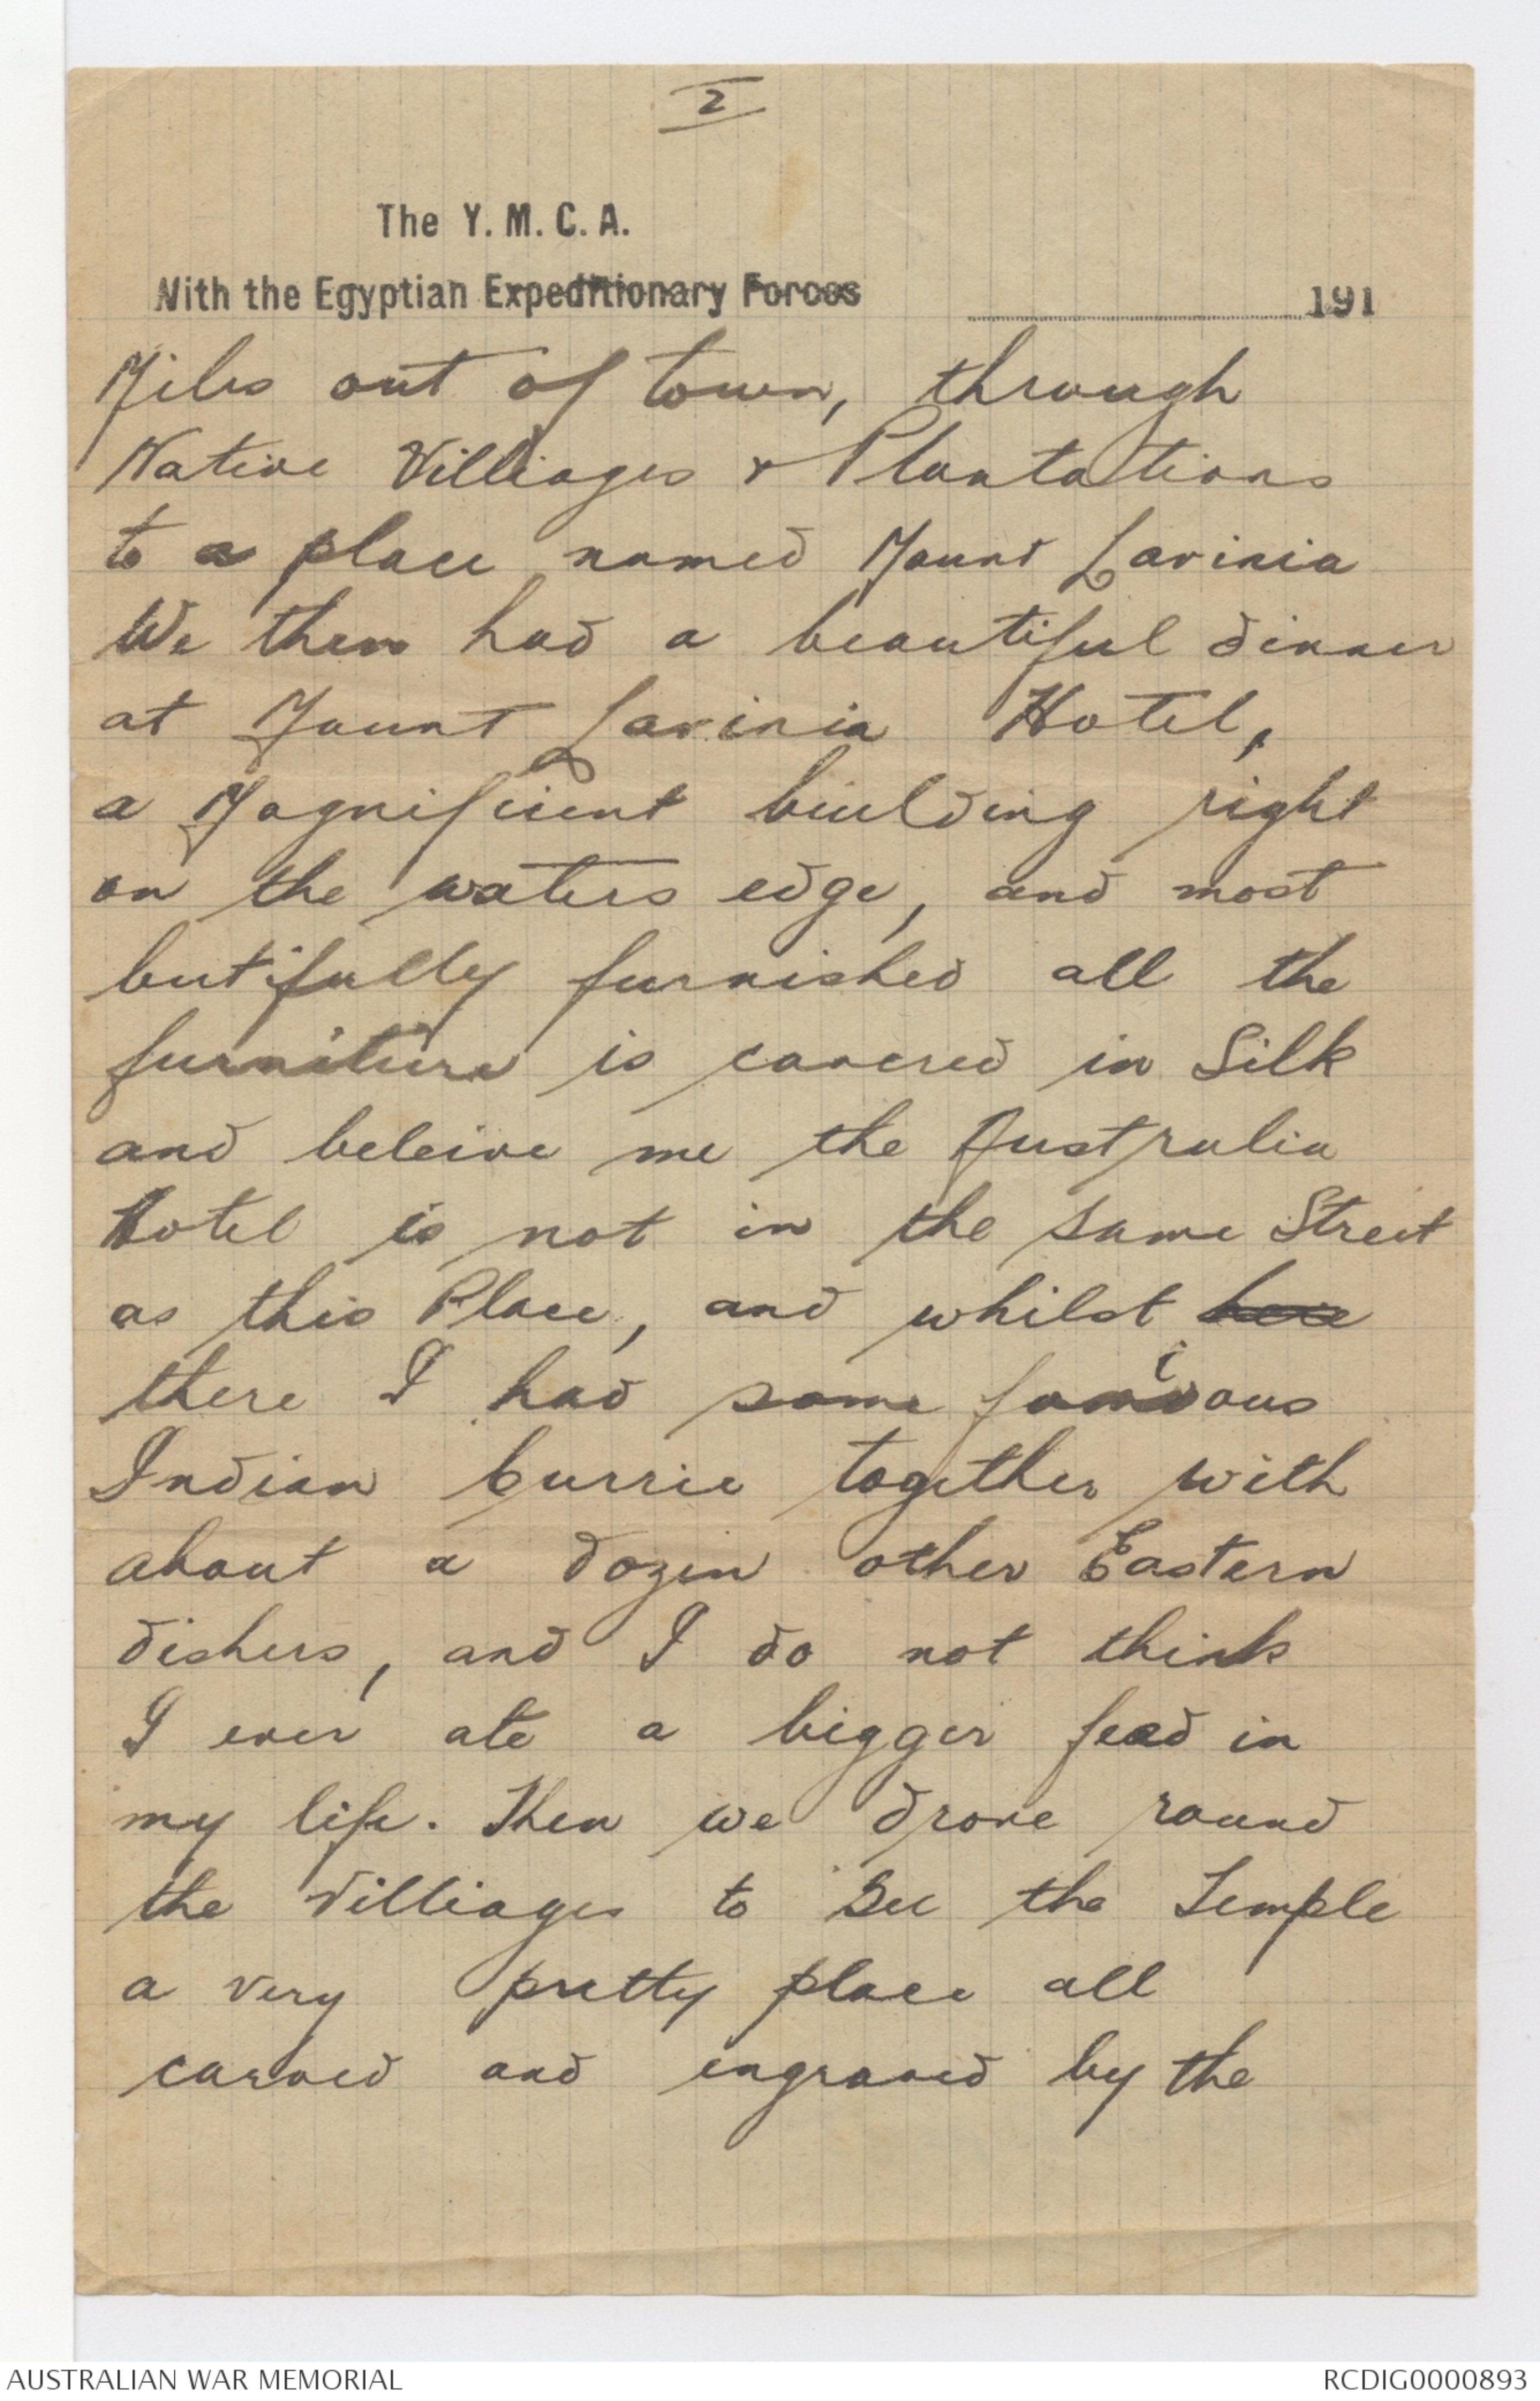 2
The Y. M. C. A.
With the Egyptian Expeditionary Forces
191
Miles out of town, through
Native Villiages & Plantations
to a place named Mount Lavinia
We then had a beautiful dinner
at Mount Lavinia Hotel,
a Magnificient building right
on the waters edge, and most
butifully furnished all the
furniture is covered in Silk
and beleive me the Australia
Hotel is not in the same Street
as this Place, and whilst here
there I had some
Indian Currie together with
about a dozen other Eastern
dishers, and I do not think
I ever ate a bigger feed in
my life. Then we drove round
the Villiages to See the Temple
a very pretty place all
carved and engraved by the
AUSTRALIAN WAR MEMORIAL
RCDIG0000893